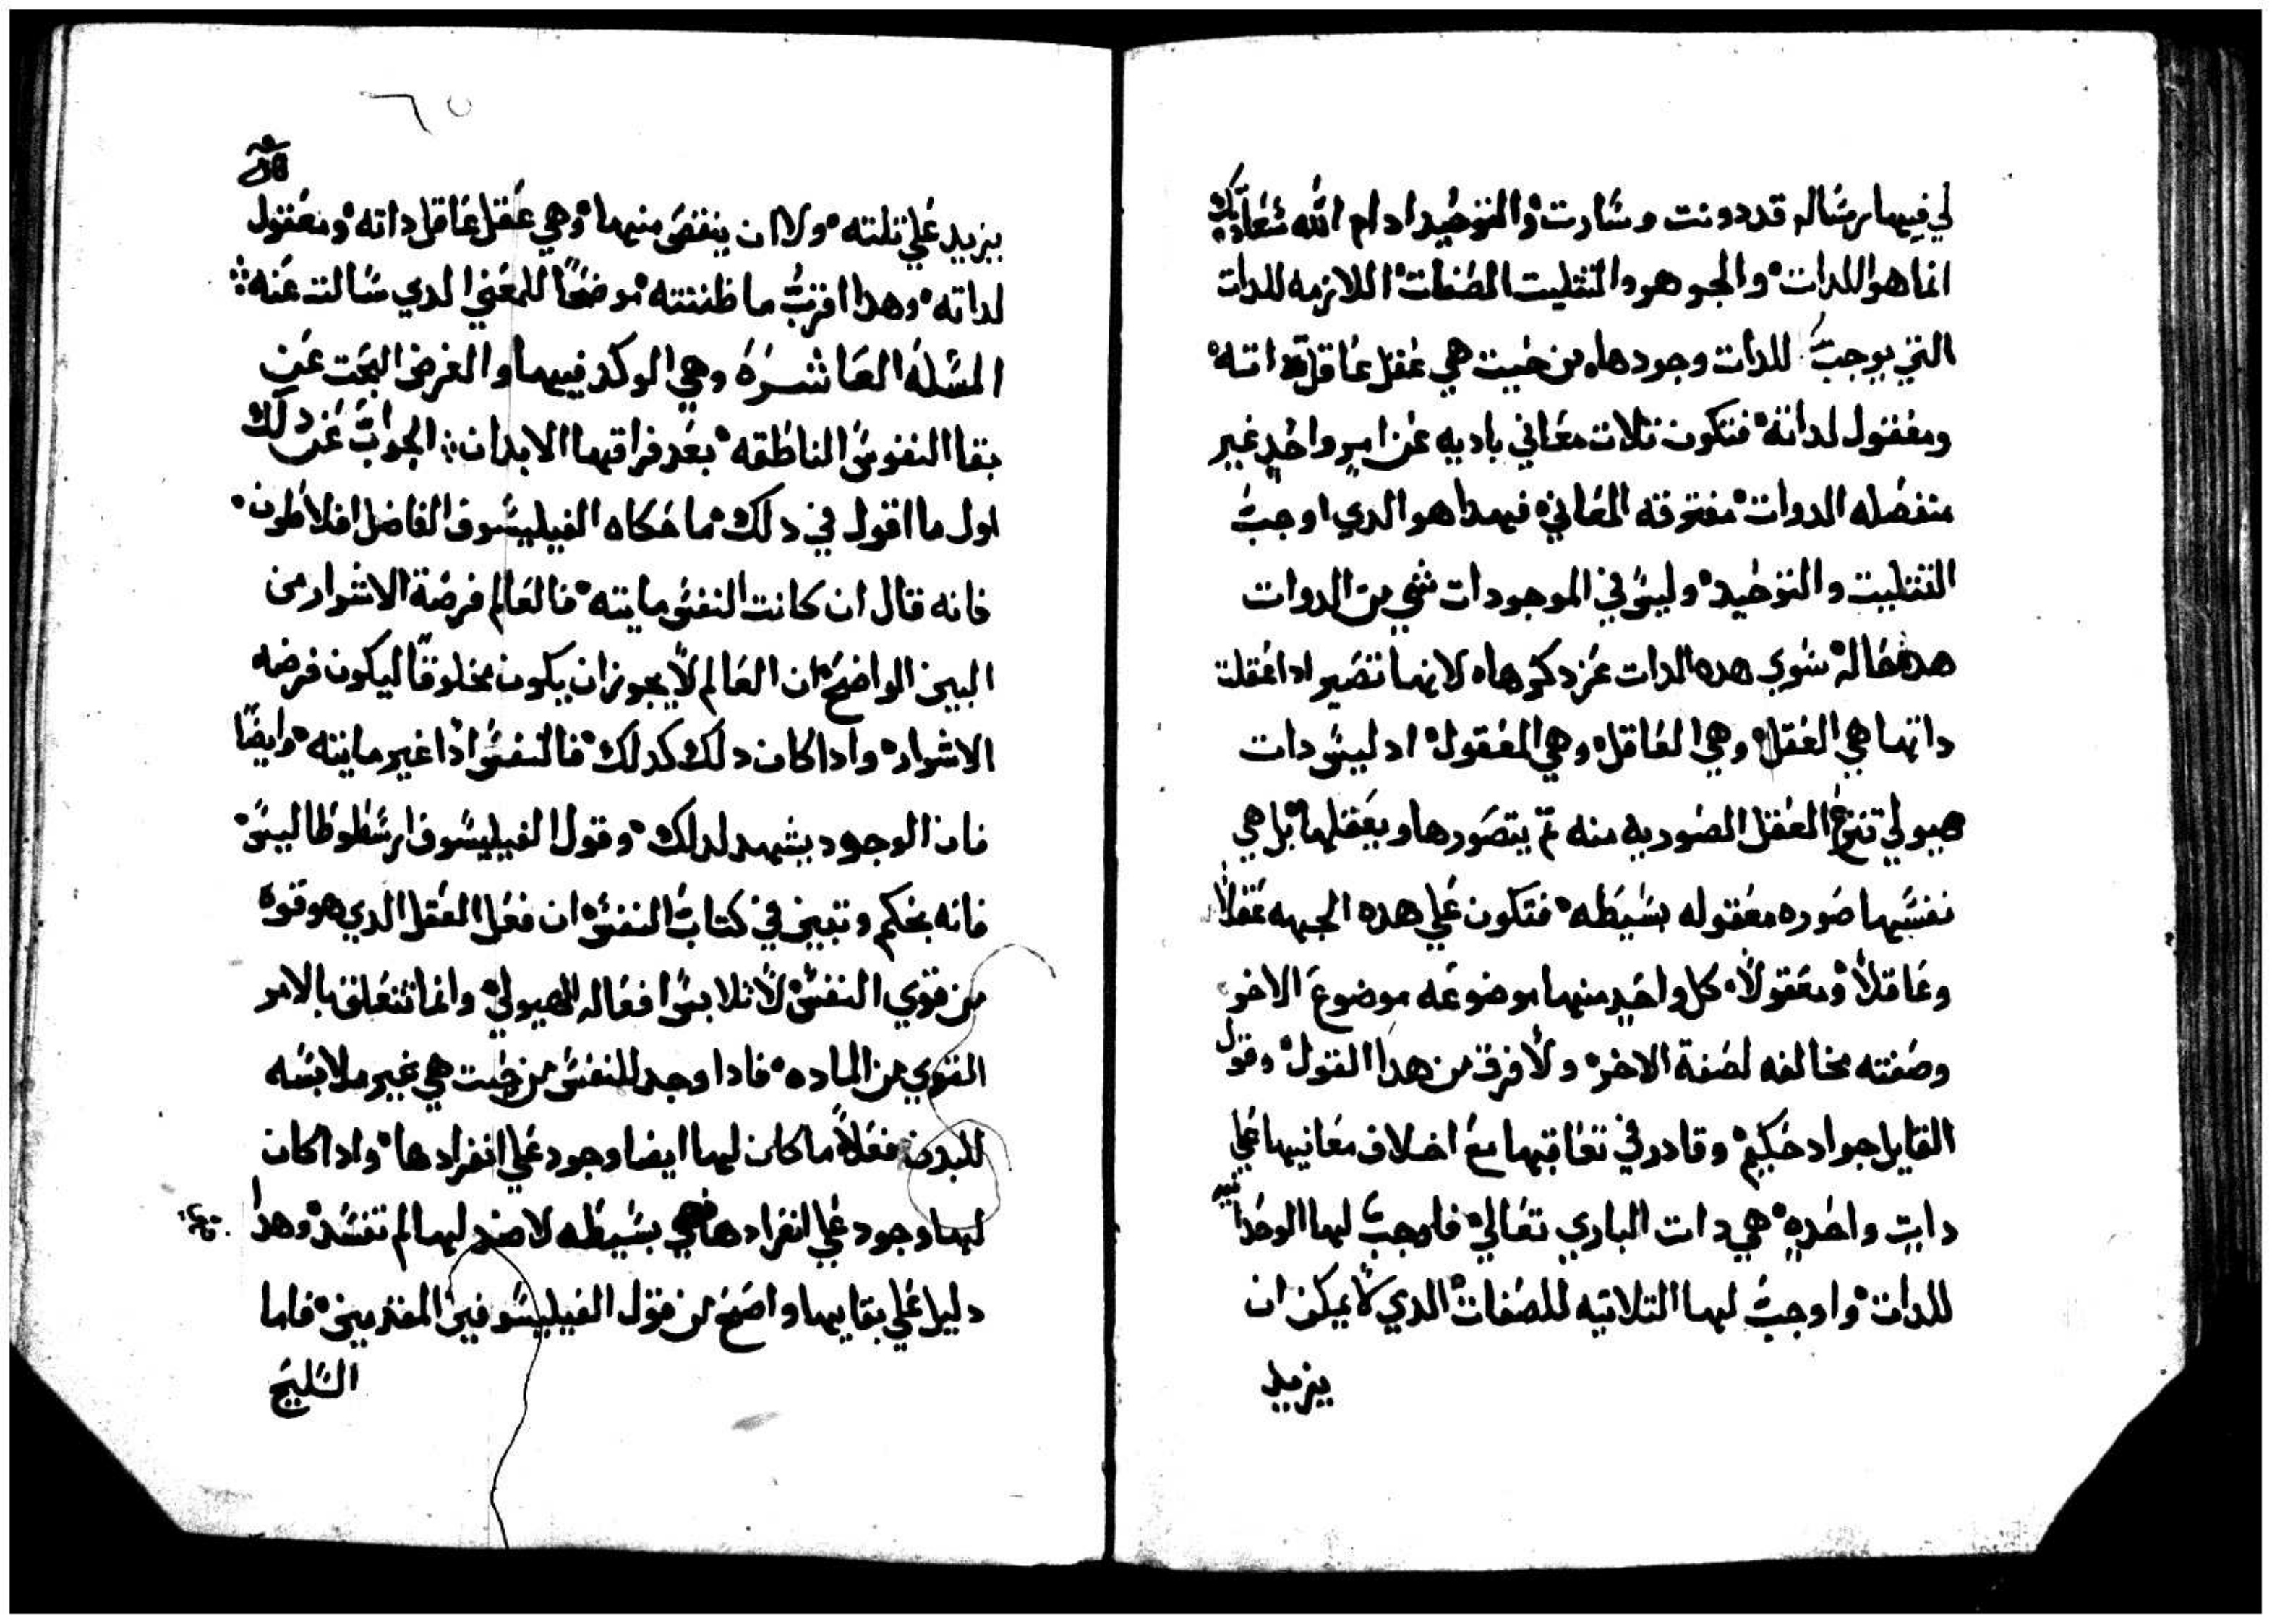 لي فيها رساله قد دونت وسارت والتوحيد ادام الله سعادتك
انما هو للدات والجوهر والتثليت الصفات اللازمه للدات
التي يوجب للدات وجودها من حيت هي عقل عاقل داته
ومعقول لداته فتكون تلات معاني باديه عن امرٍ واحدٍ غير
منفصله الدوات مفترقه المعاني فهدا هو الدي اوجب
التتليت والتوحيد وليس في الموجودات شي من الدوات
هده حاله سوي هده الدات عز دكرها لانها تصير ادا عقلت
داتها هي العقل وهي العاقل وهي المعقول اد ليس دات
هيولي تنزع العقل الصوريه منه تم يتصورها ويعقلها بل هي
نفسها صوره معقوله بسيطه فتكون علي هده الجهه عقلاً
وعاقلاً ومعقولاً كل واحدٍ منها موضوعه موضوع الاخر
وصفته مخالفه لصفة الاخر ولا فرق من هدا القول وقول
القايل جواد حكيم وقادر في تعاقبها مع اختلاف معانيها علي
داتٍ واحدهٍ هي دات الباري تعالي فاوجب لها الوحدانيه
للدات واوجب لها التلاتيه للصفات الدي لا يمكن ان
يزيد
٦٥
يزيد علي تلته ولا ان ينقص منها وهي عقل عاقل داته ومعقول
لداته وهدا اقرب ما ظننته موضحاً للمعني الدي سالت عنه
المسله العاشره وهي الوكد فيها والغرض البحت عن
بقا النفوس الناطقه بعد فراقها الابدان الجواب عن دلك
اول ما اقول في دلك ما حكاه الفيليسوف الفاضل افلاطون
فانه قال ان كانت النفس مايته فالعالم فرصة الاشرار من
البين الواضح ان العالم لا يجوز ان يكون مخلوقاً ليكون فرصه
الاشرار وادا كان دلك كدلك فالنفس ادًا غير مايته وايضًا
فان الوجود يشهد لدلك وقول الفيليسوف ارسطوطاليس
فانه بحكم وتبين في كتاب النفس ان فعل العقل الدي هو قوه
من قوي النفس لا تلابس افعاله الهيولي وانما تتعلق بالامر
القوي من الماده فادا وجد للنفس من حيت هي غير ملابسه
للبدن فعلاً ما كان لها ايضا وجود علي انفرادها وادا كان
لها وجود علي انفرادها فهي بسيطه لا ضد لها لم تفسد وهدا
دليل علي بقايها واضح من قول الفيليسوفين المقدمين فاما
السليح